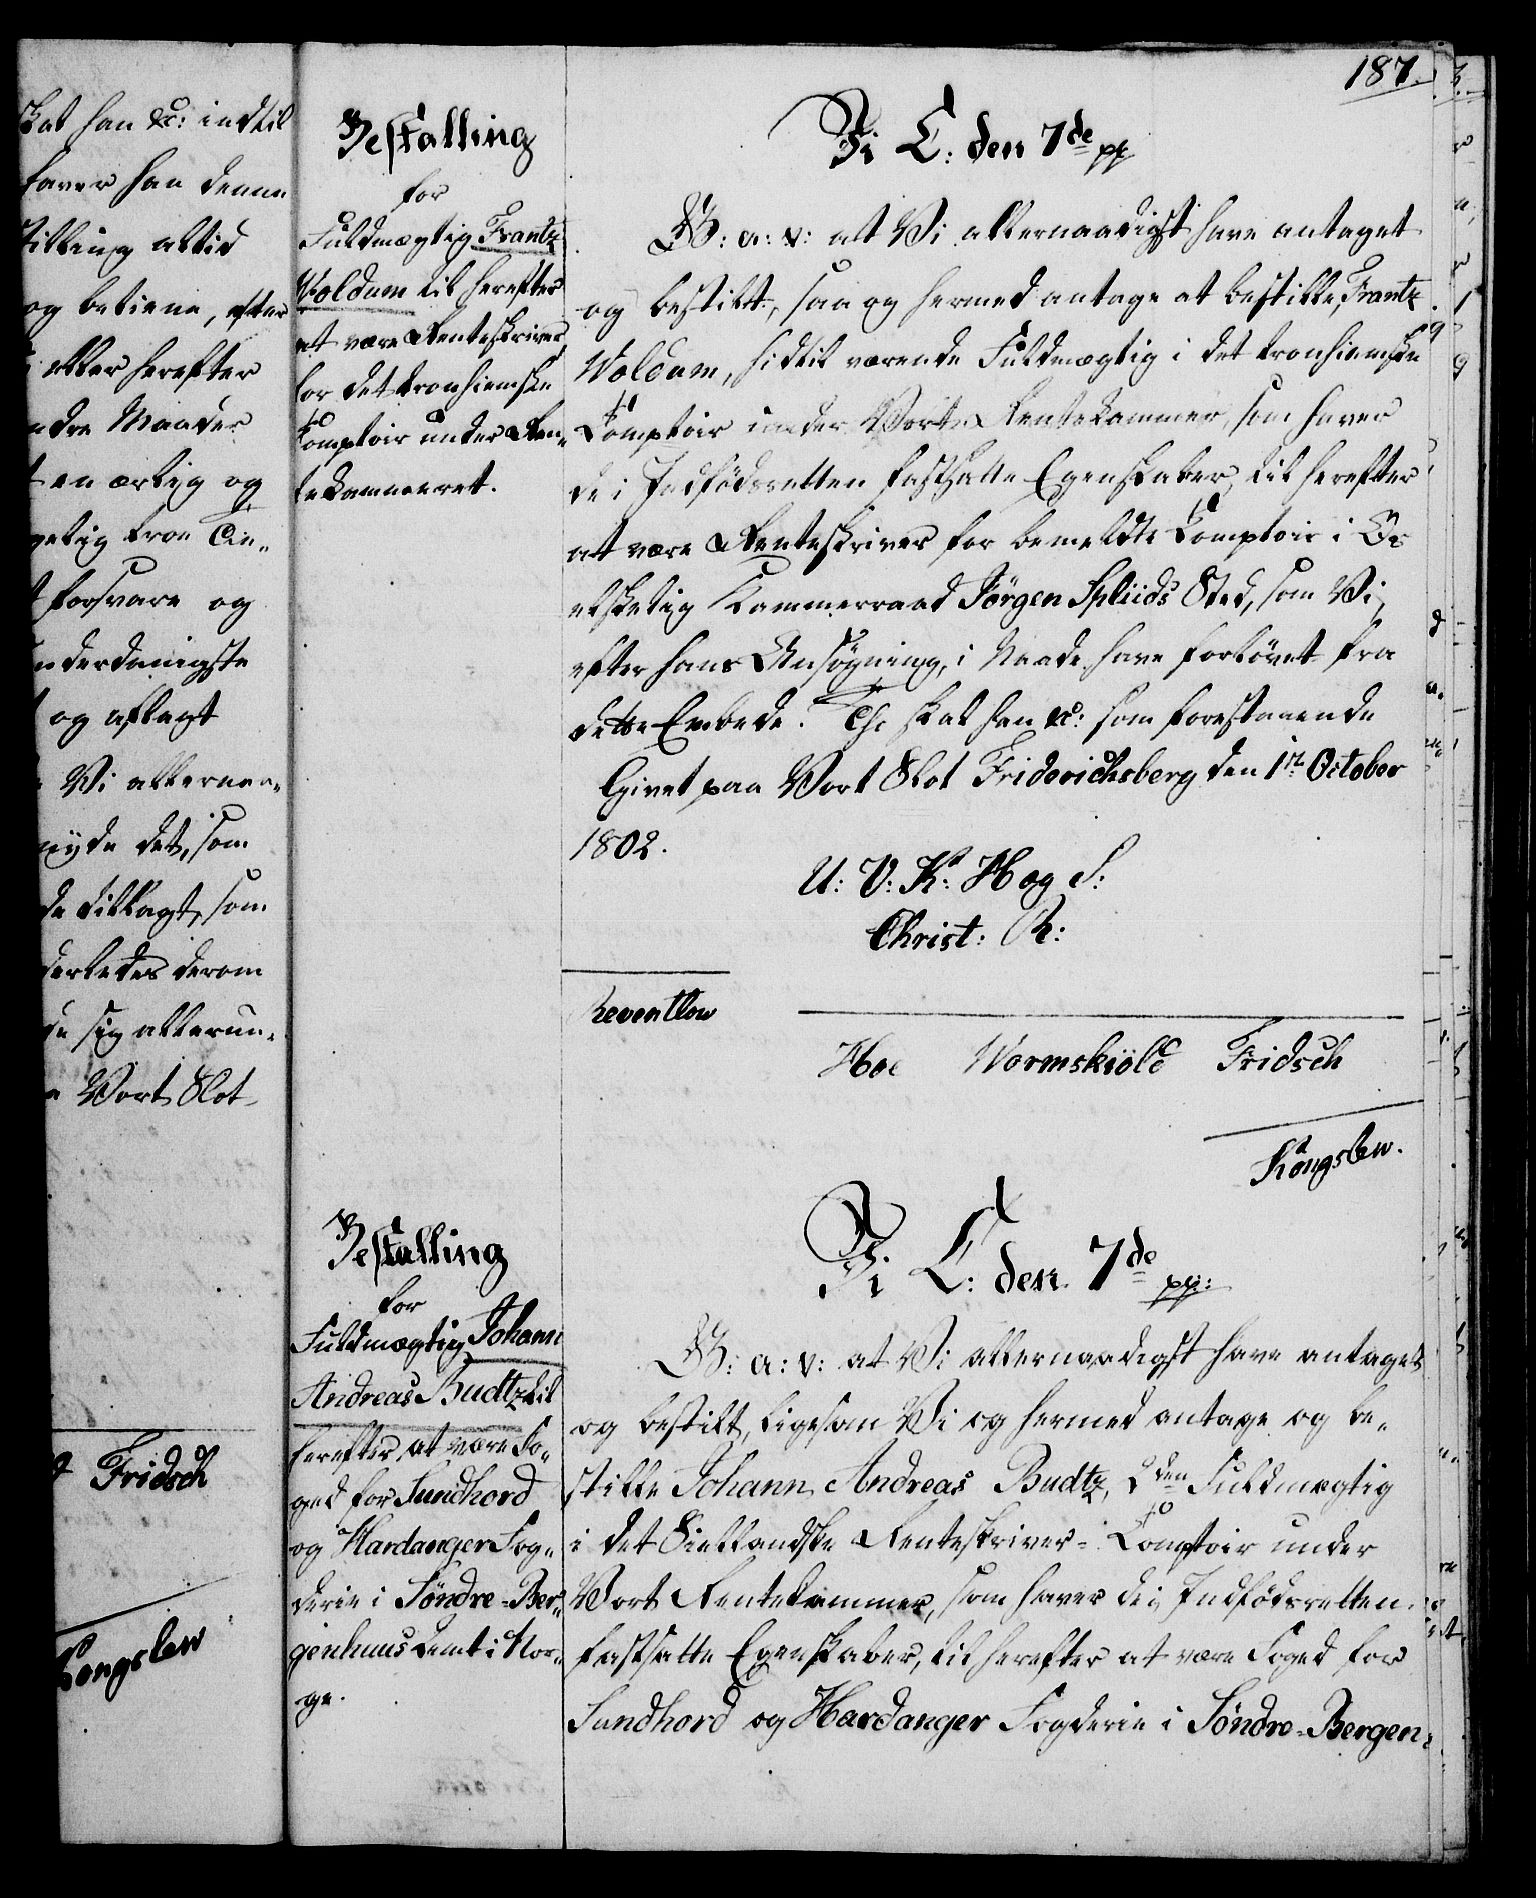 187.
Skal han &c: indtil
haver han denne
stilling altid
og betiene, efter
eller herefter
andre Maader
en ærlig og
velig troe Tie-
forsvare og
underdanigste
og aflagt
Vi allernaa-
nyde det, som
de tillagt, som
derledes derom
de sig allerun-
Vort Slot
Fridsch
Kongslew
Bestalling
for
Fuldmægtig Frantz
Woldum til herefter
at være Renteskriver
for det tronhiemske
Comptoir under Ren-
tekammeret.
Vi C: den 7de pp
G: a: v: at Vi allernaadigst have antaget
og bestilt, saa og hermed antage at bestille, Frantz
Woldum, hidtil værende Fuldmægtig i det tronhiemske
Comptoir under Vort Rentekammer, som haver
de i Indfødsretten fastsatte Egenskaber, til herefter
at være Renteskriver for bemeldte Comptoir i Os
elskelig Kammerraad Jörgen Spliids Sted, som Vi,
efter hans Ansøgning, i Naade have forlövet fra
dette Embede. Thi skal han &c: som forestaaende
Givet paa Vort Slot Friderichsberg den 1te October
1802.
U: V: K: H og S:
Christ: R:
Reventlow
Hoe Wormskiöld Fridsch
Kongslew.
Bestalling
for
Fuldmægtig Johann
Andreas Budtz til
herefter at være Fo-
ged for Sundhord
og Hardanger Fog-
derie i Söndre-Ber-
genhuus Amt i Nor-
ge.
Vi C: den 7de pp:
G: a: v: at Vi allernaadigst have antaget
og bestilt, ligesom Vi og hermed antage og be-
stille Johann Andreas Budtz, 2den Fuldmægtig
i det Siellandske Renteskriver-Comptoir under
Vort Rentekammer, som haver de i Indfødsretten
fastsatte Egenskaber, til herefter at være Foged for
Sundhord og Hardanger Fogderie i Söndre-Bergen-